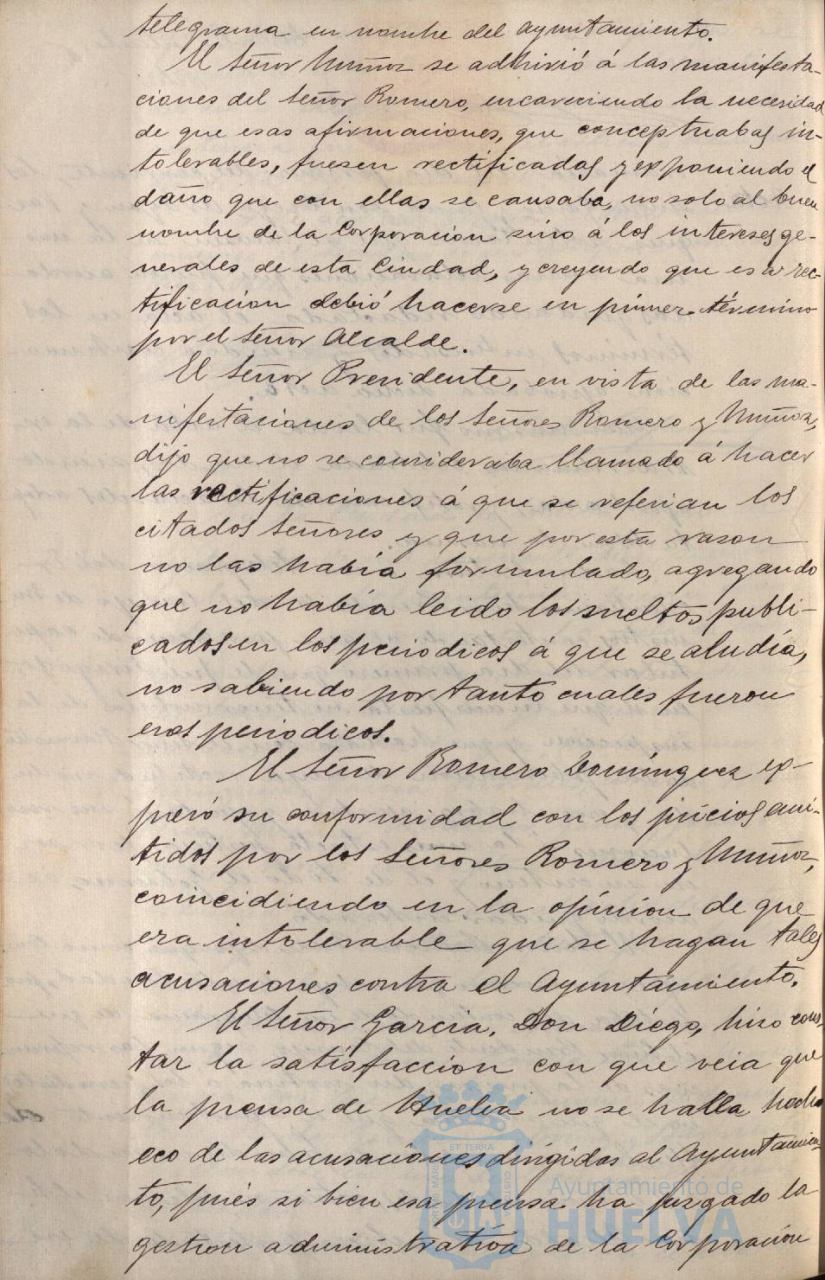 telegrama en nombre del Ayuntamiento.
El Señor Muñoz se adhirió á las manifesta-
ciones del Señor Romero, encareciendo la necesidad
de que esas afirmaciones, que conceptuabas in-
tolerables, fuesen rectificadas y exponiendo el
daño que con ellas se causaba, no solo al buen
nombre de la Corporacion sino á los intereses ge-
nerales de esta Ciudad, y creyendo que esa rec-
tificacion debió hacerse en primer término
por el Señor Alcalde.
El Señor Presidente, en vista de las ma-
nifestaciones de los Señores Romero y Muñoz,
dijo que no se consideraba llamado á hacer
las rectificaciones á que se referian los
citados Señores y que por esta rason
no las había formulado, agregando
que no había leido los sueltos publi-
cados en los periodicos á que se aludía,
no sabiendo por tanto cuales fueron
esos periodicos.
El Señor Romero Domínguez ex-
peró su conformidad con los juicios emi-
tidos por los Señores Romero y Muñoz,
coincidiendo en la opinion de que
era intolerable que se hagan tales
acusaciones contra el Ayuntamiento.
El Señor Garcia, Don Diego, hizo cons-
tar la satisfaccion con que veia que
la prensa de Huelva no se halla hecho
eco de las acusaciones dirigidas al Ayuntamien-
to, pués si bien esa prensa ha juzgado la
gestion administrativa de la Corporación
Ayuntamiento de
HUELVA